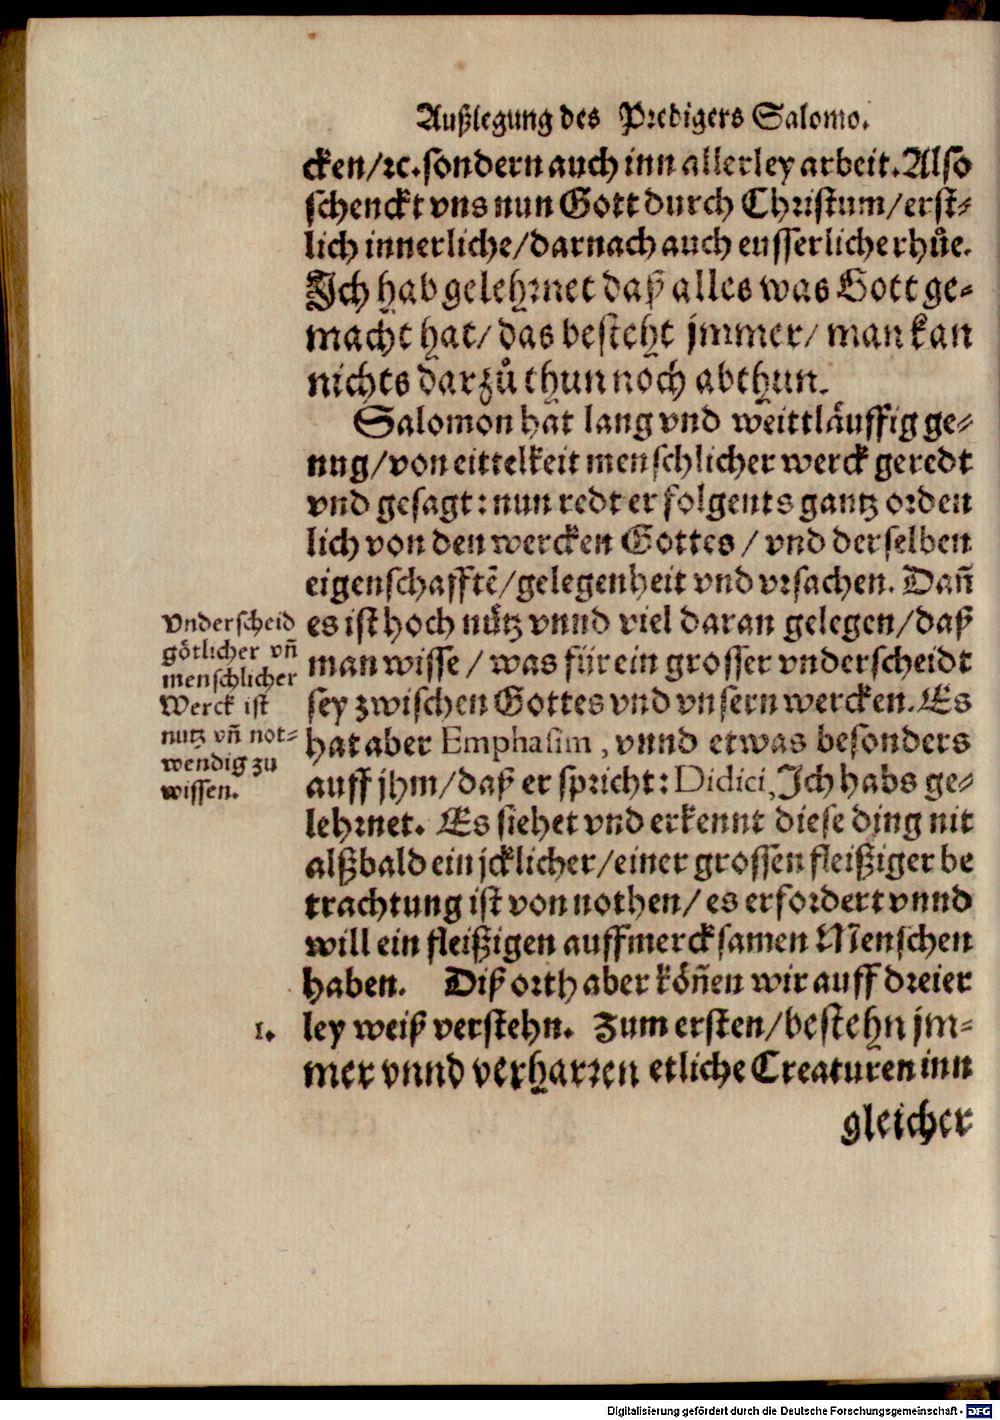 Außlegung des Predigers Salomo.
cken/ꝛc. sondern auch inn allerley arbeit. Also
schenckt vns nun Gott durch Christum/ erst-
lich innerliche/ darnach auch eusserliche rhůe.
Ich hab gelehrnet daß alles was Gott ge-
macht hat/ das besteht jmmer/ man kan
nichts darzů thun noch abthun.
Salomon hat lang vnd weittläuffig ge-
nug/ von eittelkeit menschlicher werck geredt
vnd gesagt: nun redt er folgents gantz orden
lich von den wercken Gottes / vnd derselben
eigenschafftē/ gelegenheit vnd vrsachen. Dañ
es ist hoch nütz vnnd viel daran gelegen/ daß
man wisse / was für ein grosser vnderscheidt
sey zwischen Gottes vnd vnsern wercken. Es
hat aber Emphasim, vnnd etwas besonders
auff jhm/ daß er spricht: Didici, Ich habs ge-
lehrnet. Es siehet vnd erkennt diese ding nit
alßbald ein jcklicher/ einer grossen fleißiger be
trachtung ist von nothen/ es erfordert vnnd
will ein fleißigen auffmercksamen Menschen
haben. Diß orth aber köñen wir auff dreier
ley weiß verstehn. Zum ersten/ bestehn jm-
mer vnnd verharren etliche Creaturen inn
gleicher
Vnderscheid
götlicher vñ
menschlicher
Werck ist
nutz vñ not-
wendig zu
wissen.
1.
Digitalisierung gefördert durch die Deutsche Forschungsgemeinschaft - DFG